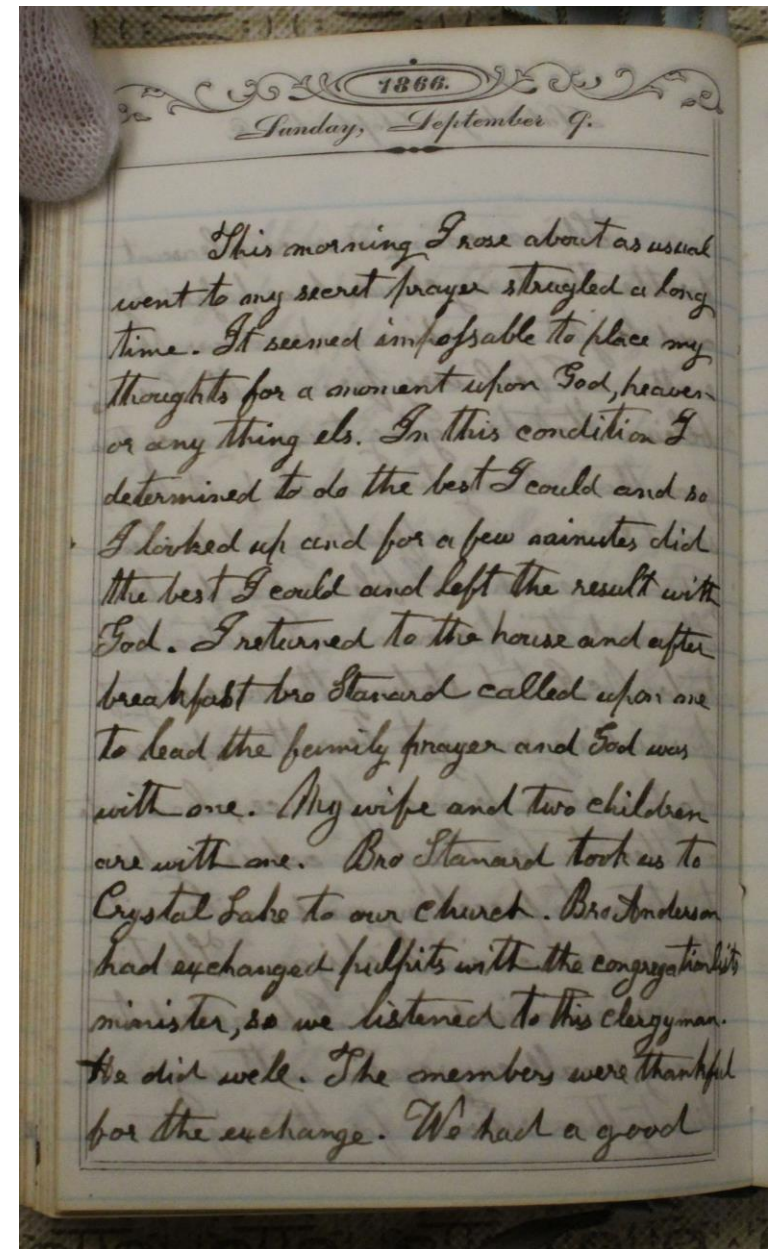 1866.
Sunday, September 9.
This morning I rose about as usual
went to my secret prayer strugled a long
time. It seemed impossable to place my
thoughts for a moment upon God, heaven
or any thing els. In this condition I
determined to do the best I could and so
I looked up and for a few minutes did
the best I could and left the result with
God. I returned to the house and after
breakfast bro Stanard called upon me
to lead the family prayer and God was
with me. My wife and two children
are with me. Bro Stanard took us to
Crystal Lake to our church. Bro Anderson
had exchanged pulpits with the congregationlists
minister, so we listened to this clergyman.
He did well. The members were thankful
for the exchange. We had a good